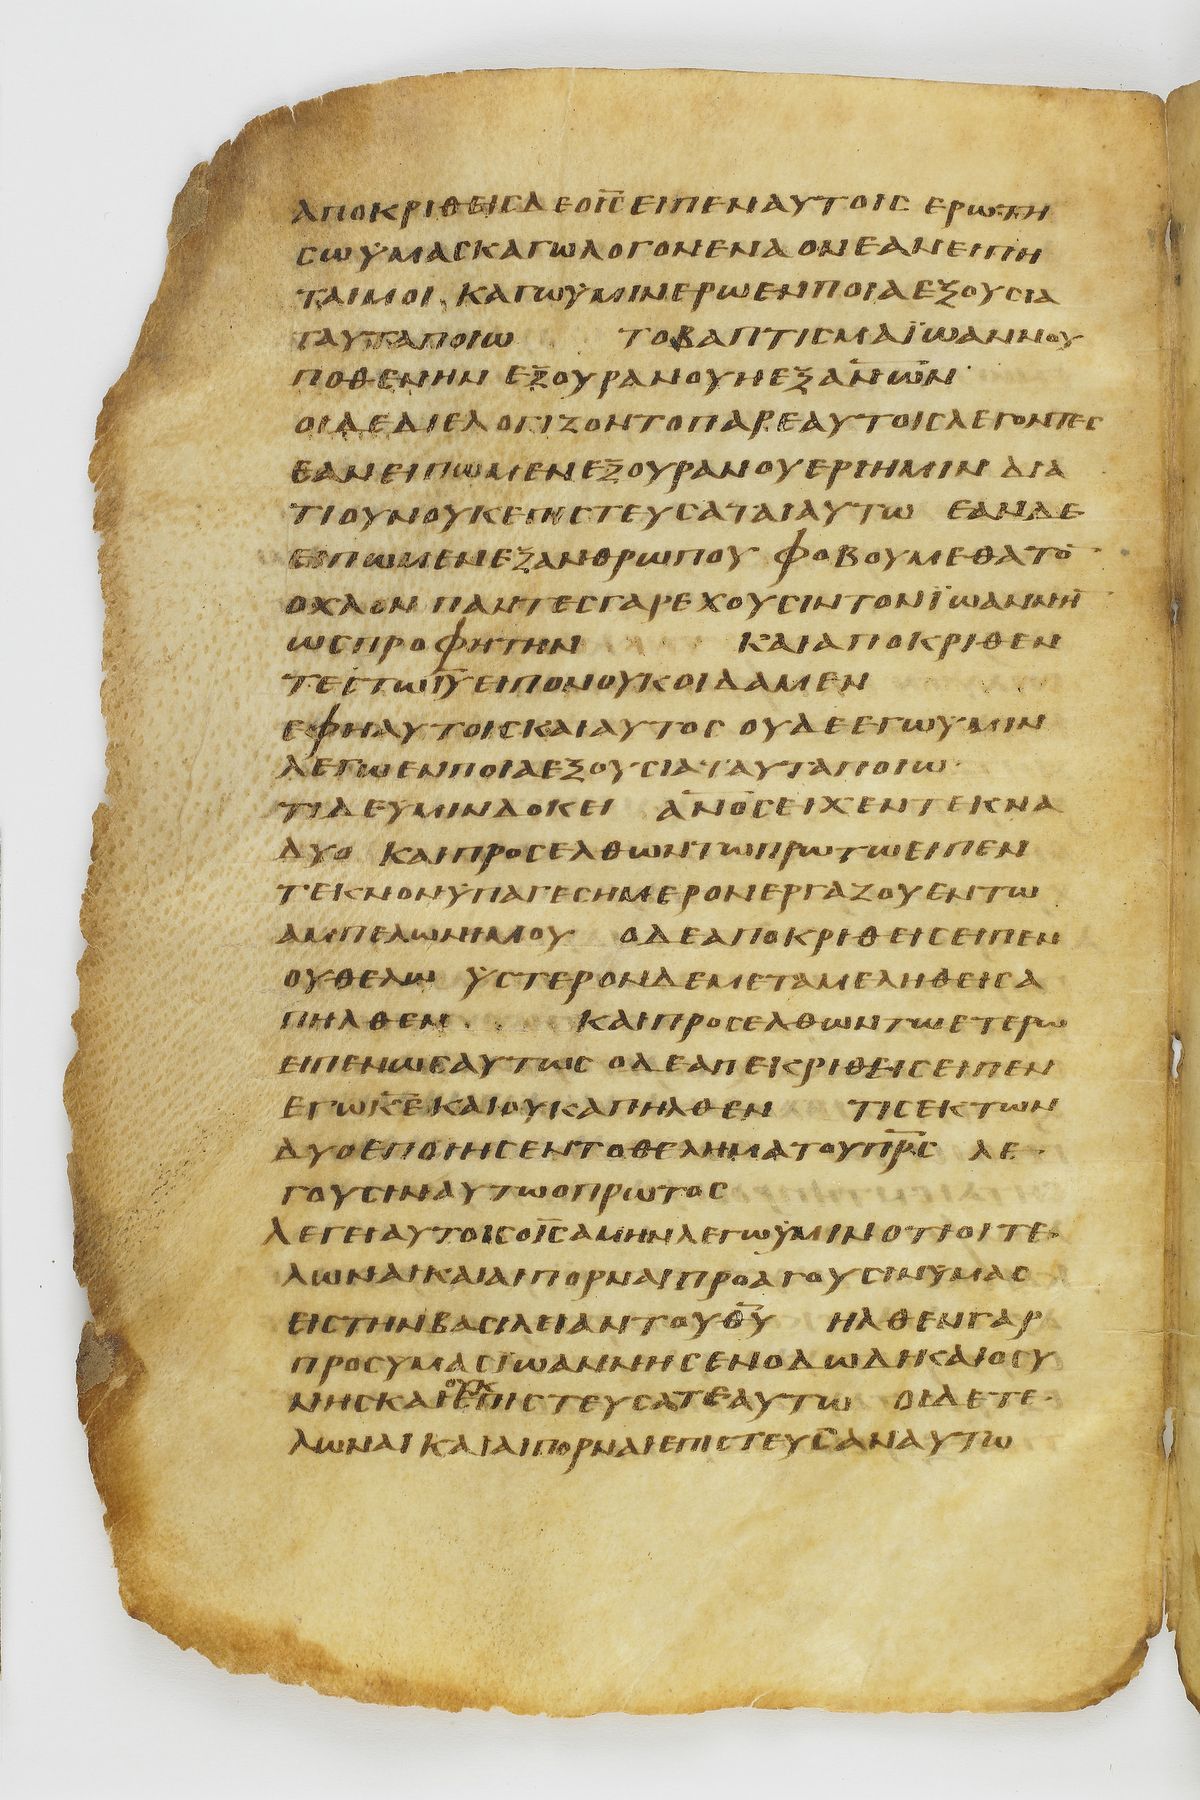 ΑΠΟΚΡΙΘΕΙϹΔΕΟΙ̅Ϲ̅ΕΙΠΕΝΑΥΤΟΙϹ ΕΡΩΤΗ
ϹΩΫΜΑϹΚΑΓΩΛΟΓΟΝΕΝΑΟΝΕΑΝΕΙΠΗ
ΤΑΙΜΟΙ ΚΑΓΩΫΜΙΝΕΡΩΕΝΠΟΙΑΕΞΟΥϹΙΑ
ΤΑΥΤΑΠΟΙΩ ΤΟΒΑΠΤΙϹΜΑΪΩΑΝΝΟΥ
ΠΟΘΕΝΗΝ ΕΞΟΥΡΑΝΟΥΗΕΞΑ̅Ν̅Ω̅Ν̅
ΟΙΔΕΔΙΕΛΟΓΙΖΟΝΤΟΠΑΡΕΑΥΤΟΙϹΛΕΓΟΝΤΕϹ
ΕΑΝΕΙΠΩΜΕΝΕΞΟΥΡΑΝΟΥΕΡΙΗΜΙΝ ΔΙΑ
ΤΙΟΥΝΟΥΚΕΠΙϹΤΕΥϹΑΤΑΙΑΥΤΩ ΕΑΝΔΕ
ΕΙΠΩΜΕΝΕΞΑΝΘΡΩΠΟΥ ΦΟΒΟΥΜΕΘΑΤΟ̅
ΟΧΛΟΝ ΠΑΝΤΕϹΓΑΡΕΧΟΥϹΙΝΤΟΝΪΩΑΝΝΗ̅
ΩϹΠΡΟΦΗΤΗΝ ΚΑΙΑΠΟΚΡΙΘΕΝ
ΤΕϹΤΩΙ̅Υ̅ΕΙΠΟΝΟΥΚΟΙΔΑΜΕΝ
ΕΦΗΑΥΤΟΙϹΚΑΙΑΥΤΟϹ ΟΥΔΕΕΓΩΥΜΙΝ
ΛΕΓΩΕΝΠΟΙΑΕΞΟΥϹΙΑΤΑΥΤΑΠΟΙΩ
ΤΙΔΕΥΜΙΝΔΟΚΕΙ Α̅Ν̅Ο̅Ϲ̅ΕΙΧΕΝΤΕΚΝΑ
ΔΥΟ ΚΑΙΠΡΟϹΕΛΘΩΝΤΩΠΡΩΤΩΕΙΠΕΝ
ΤΕΚΝΟΝΥΠΑΓΕϹΗΜΕΡΟΝΕΡΓΑΖΟΥΕΝΤΩ
ΑΜΠΕΛΩΝΙΜΟΥ ΟΔΕΑΠΟΚΡΙΘΕΙϹΕΙΠΕΝ
ΟΥΘΕΛΩ ΫϹΤΕΡΟΝΔΕΜΕΤΑΜΕΛΗΘΕΙϹΑ
ΠΗΛΘΕΝ ΚΑΙΠΡΟϹΕΛΘΩΝΤΩΕΤΕΡΩ
ΕΙΠΕΝΩϹΑΥΤΩϹ ΟΔΕΑΠΕΚΡΙΘΕΙϹΕΙΠΕΝ
ΕΓΩΚ̅Ε̅ΚΑΙΟΥΚΑΠΗΛΘΕΝ ΤΙϹΕΚΤΩΝ
ΔΥΟΕΠΟΙΗϹΕΝΤΟΘΕΛΗΜΑΤΟΥΠ̅Ρ̅Ϲ̅ ΛΕ
ΓΟΥϹΙΝΑΥΤΩΟΠΡΩΤΟϹ
ΛΕΓΕΙΑΥΤΟΙϹΟΙ̅Ϲ̅ΑΜΗΝΛΕΓΩΫΜΙΝΟΤΙΟΙΤΕ
ΛΩΝΑΙΚΑΙΑΙΠΟΡΝΑΙΠΡΟΑΓΟΥϹΙΝΫΜΑϹ
ΕΙϹΤΗΝΒΑϹΙΛΕΙΑΝΤΟΥΘ̅Υ̅ ΗΛΘΕΝΓΑΡ
ΠΡΟϹΥΜΑϹΪΩΑΝΝΗϹΕΝΟΔΩΔΙΚΑΙΟϹΥ
ΝΗϹΚΑΙΟΥΚΕΠΙϹΤΕΥϹΑΤΕΑΥΤΩ ΟΙΔΕΤΕ
ΛΩΝΑΙΚΑΙΑΙΠΟΡΝΑΙΕΠΙϹΤΕΥϹΑΝΑΥΤΩ